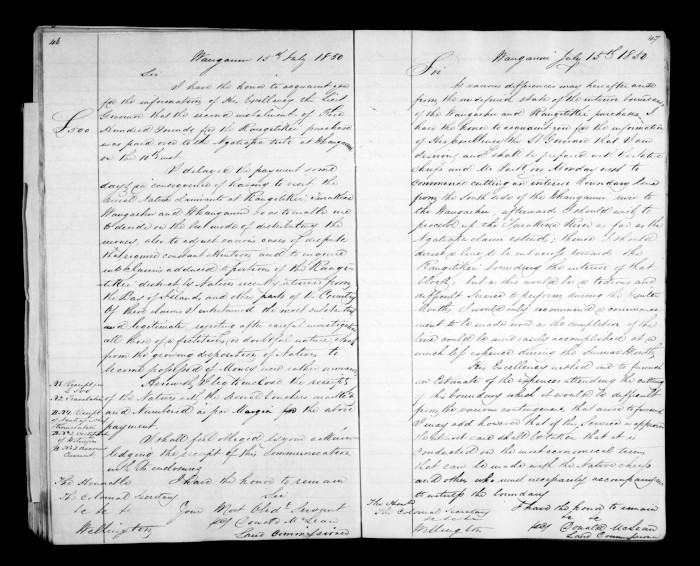 46
Wanganui 15th July 1850
Sir
I have the honor to acquaint you
for the information of His Excellency the Lieut
Governor that the second instalment of Five
£500
Hundred Pounds for the Rangitikei purchase
was paid over to the Ngatiapa tribe at Wanganui
on the 10th inst.
I delayed the payment some
days in consequence of having to visit the
several Native at Rangitikei, Turakina
Wangaehu and Whanganui so as to enable me
to decide on the best mode of distributing the
money, also to adjust various cases of dispute
that require constant attention and to enquire
into Claims adduced to portions of the Rangi-
tikei district by Natives recently returned from
the Bay of Islands and other parts of the Country
Of these claims I entertained the most substantial
and legitimate, rejecting after careful investigation
all those of a fictitious, or doubtful nature,
from the growing disposition of Natives to
become possessed of Money
Herewith I beg to enclose the receipts
of the Natives with the several Vouchers marked
and Numbered as per Margin for the above
payment.
I shall feel obliged by your acknow-
ledging the receipt of this Communication
with its enclosures
The Honorable
The Colonial Secretary
&c &c &
Wellington
I have the honor to remain
Sir
Your Most Obedt Servant
Donald McLean
Land Commissioner
47
Wanganui July 15th 1850
Sir
As various differences may hereafter arise
from the undefined state of the interior boundary
of the Wangaehu and Rangitikei purchase, I
have the honor to acquaint you for the information
of His Excellency the Lt Governor that I am
desirous and shall be prepared with the Native
Chiefs and Mr Park on Monday next to
commence cutting an interior boundary line
from the South side of the Whanganui river to
the Wangaehu, afterwards I should wish to
proceed up the Turakina River as far as the
Ngatiapa claim extends; thence I should
direct a line to be cut across towards the
Rangitikei bounding the interior of that
block; but as this would be a tedious and
difficult Service to perform during the Winter
Months, I would only recommend a commence-
ment to be made now as the completion of the
line could be more easily accomplished at a
much less expense during the Summer Months
His Excellency wished me to furnish
an Estimate of the expenses attending the cutting
of this boundary which it would be difficult
from the various contingencies that arise to furnish
I may add however that if this Service is approved
the utmost care shall be taken that it is
conducted on the most economical terms
that can be made with the Native chiefs
and others who will necessarily accompany me
to the boundary
I have the honor to remain
&c &c
Donald McLean
Land Commissioner
The Honble
The Colonial Secretary
&c &c &c
Wellington